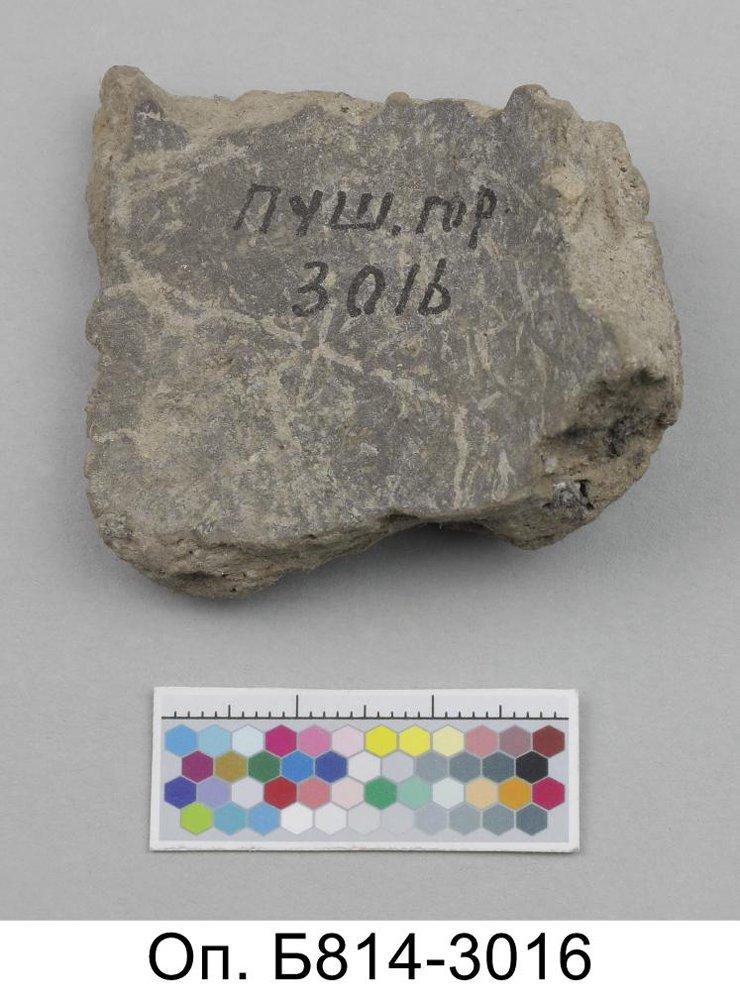 ПУШ. гор.
3016
Оп. Б814-3016